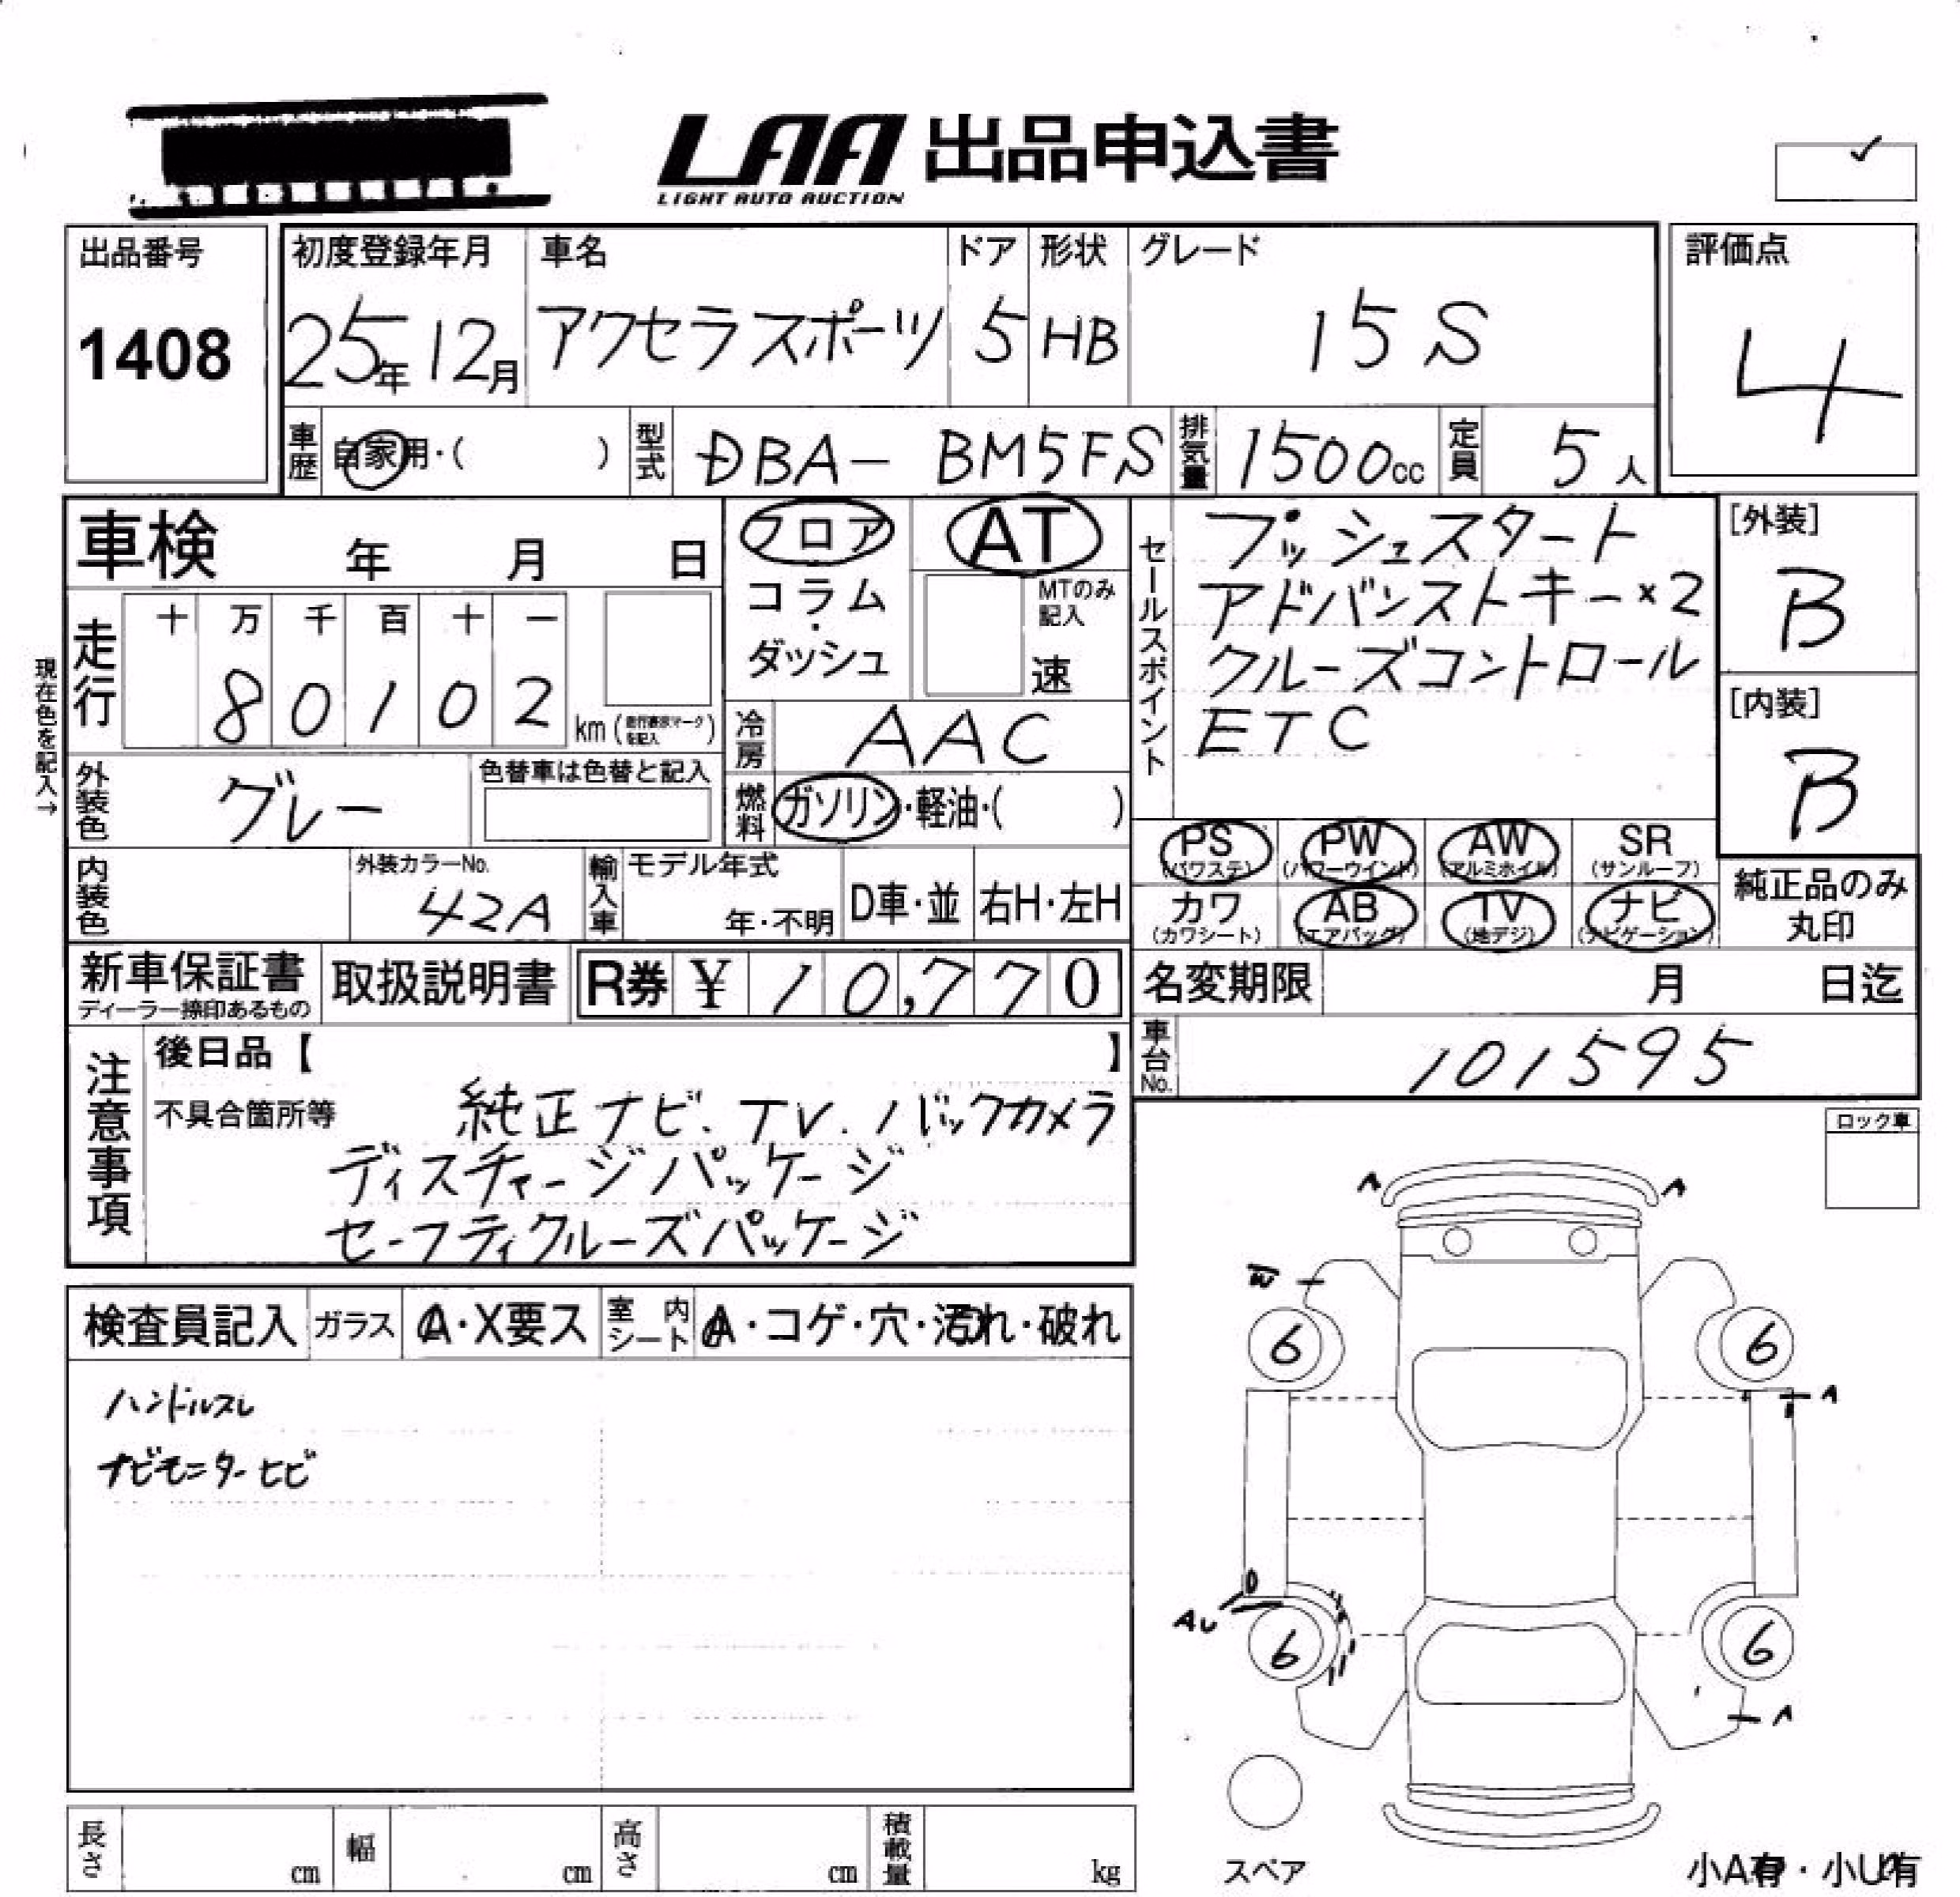 LAA 出品申込書
LIGHT AUTO AUCTION
出品番号
1408
初度登録年月
25年12月
車名
アクセラスポーツ
ドア
5
形状
HB
グレード
15S
評価点
4
車歴 自家用・( )
型式 DBA- BM5FS
排気量 1500cc
定員 5人
車検 年 月 日
走行 十 万 千 百 十 一
8 0 1 0 2 km (走行要求マークを記入)
現在色を記入→
フロア
コラム
・
ダッシュ
AT
MTのみ
記入
速
冷房 AAC
燃料 ガソリン・軽油・( )
セールスポイント
プッシュスタート
アドバンストキー×2
クルーズコントロール
ETC
[外装]
B
[内装]
B
外装色 グレー
色替車は色替と記入
内装色
外装カラーNo.
42A
輸入車
モデル年式
年・不明
D車・並
右H・左H
PS (パワステ)
PW (パワーウインド)
AW (アルミホイル)
SR (サンルーフ)
カワ (カワシート)
AB (エアバッグ)
TV (地デジ)
ナビ (ナビゲーション)
純正品のみ
丸印
新車保証書
ディーラー捺印あるもの
取扱説明書
R券 ¥ 10,770
名変期限 月 日迄
車台No. 101595
注意事項
後日品【 】
不具合箇所等 純正ナビ.TV.バックカメラ
ディスチャージパッケージ
セーフティクルーズパッケージ
ロック車
検査員記入 ガラス A・X要ス 室内シート A・コゲ・穴・汚れ・破れ
ハンドルスレ
ナビモニターヒビ
A A
W
6 6
A
AU
6 6
A
スペア
小A有・小U有
長さ cm 幅 cm 高さ cm 積載量 kg